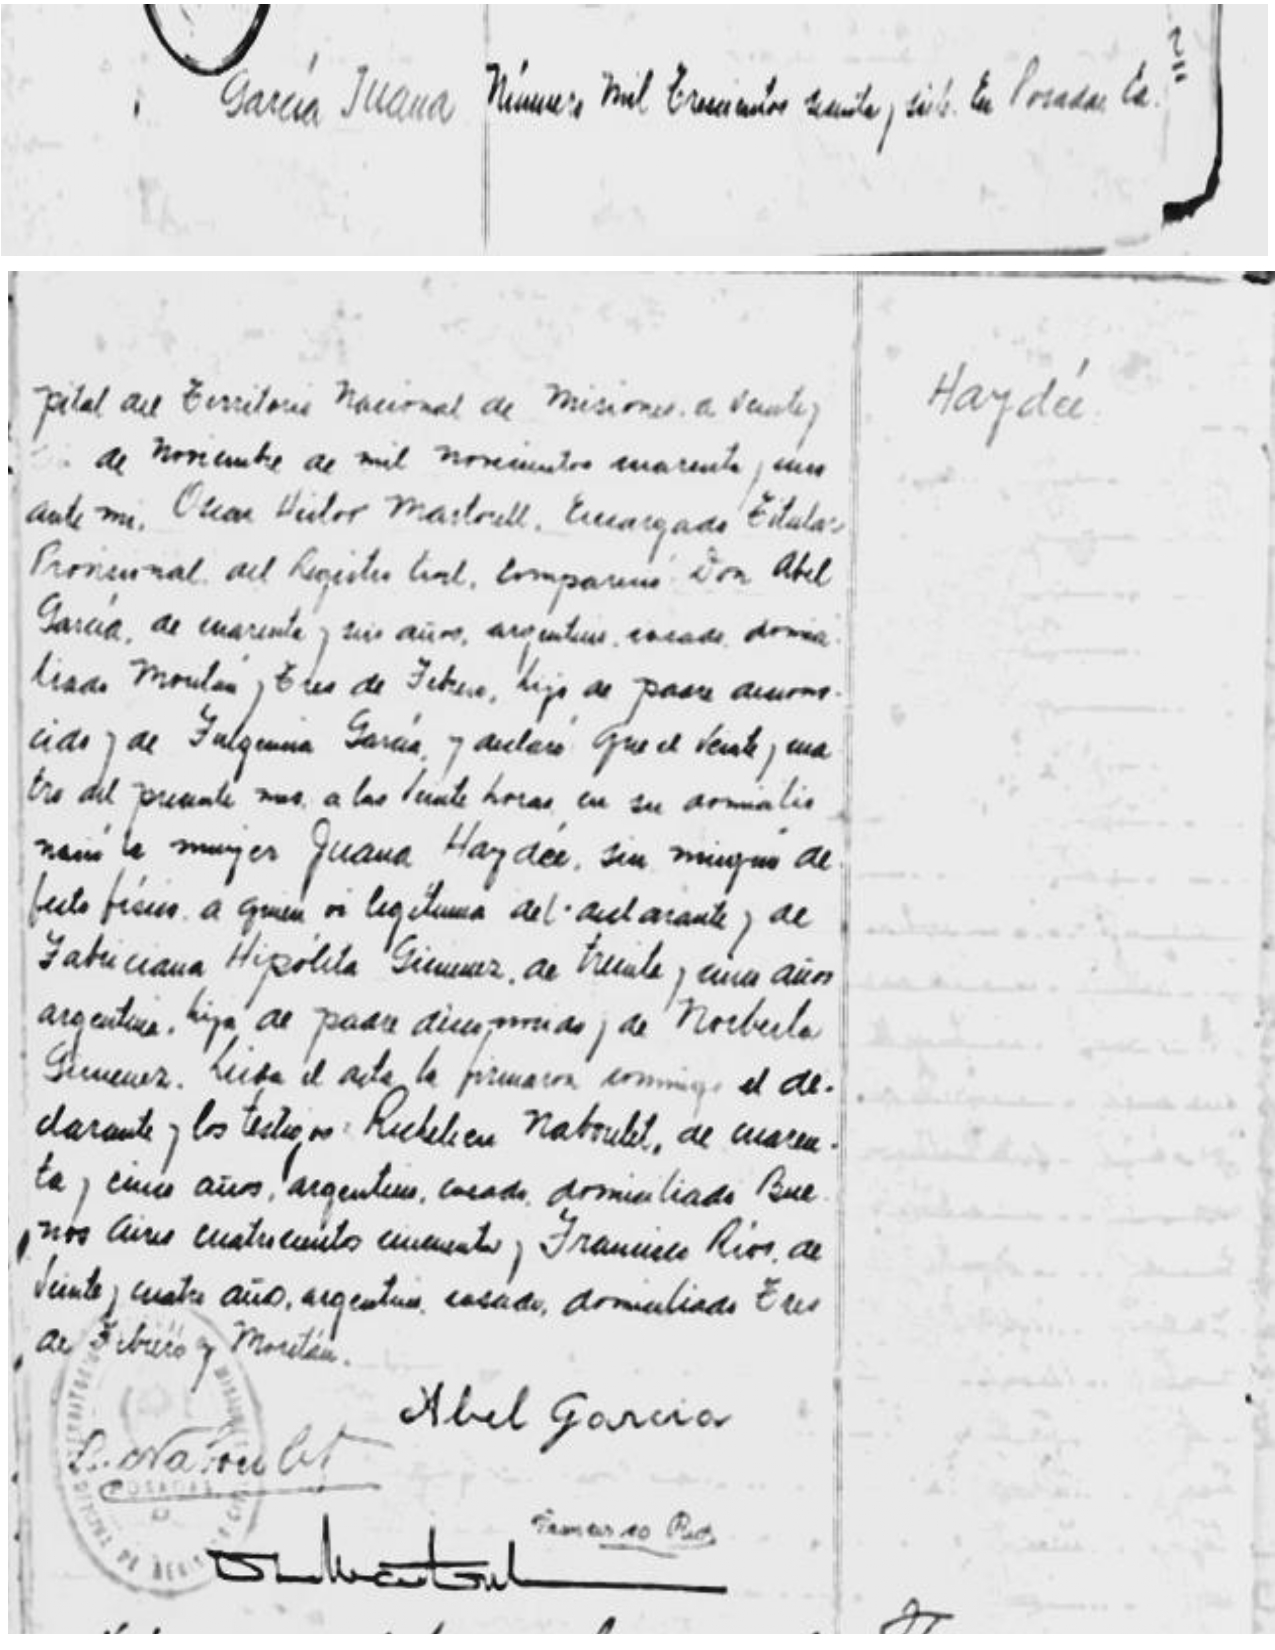 García Juana Número Mil Trescientos sesenta y siete. En Posadas Ca-
Haydée
pital del Territorio Nacional de Misiones, a veinte y
de Noviembre de mil novecientos cuarenta y uno
ante mi, Oscar Héctor Martorell, Encargado Titular
Provisional del Registro Civil, compareció Don Abel
García, de cuarenta y seis años, argentino, casado, domici-
liado Moritán y Tres de Febrero, hijo de padre descono-
cido y de Fulgencia García, y declaró: Que el veinte y cua
tro del presente mes, a las veinte horas, en su domicilio
nació la mujer Juana Haydée, sin ningún de-
fecto físico, a quien es legítima del declarante y de
Fabriciana Hipólita Gimenez, de treinta y cinco años
argentina, hija de padre desconocido y de Norberta
Gimenez. Leida el acta la firmaron conmigo el de-
clarante y los testigos: Richelieu Naboulet, de cuaren-
ta y cinco años, argentino, casado, domiciliado Bue-
nos Aires cuatrocientos cincuenta y Francisco Ríos, de
veinte y cuatro año, argentino, casado, domiciliado Tres
de Febrero y Moritán.
Abel Garcia
R. Naboulet
POSADAS
Francisco Rios